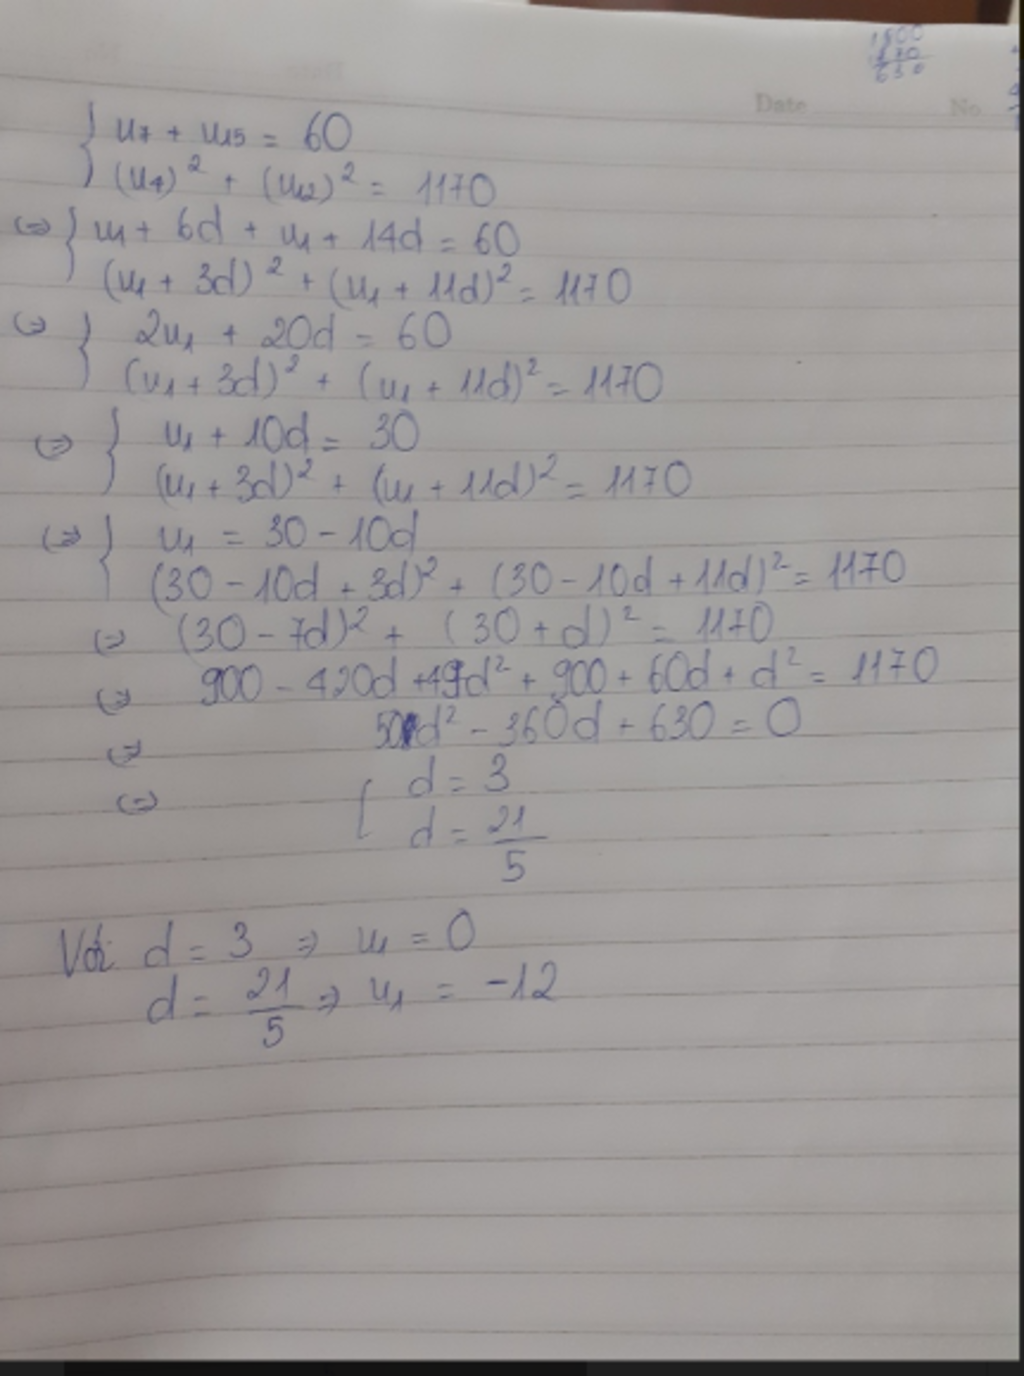 1800
1170
630
Date No.
{ u₇ + u₁₅ = 60
(u₄)² + (u₁₂)² = 1170
(=) { u₁ + 6d + u₁ + 14d = 60
(u₁ + 3d)² + (u₁ + 11d)² = 1170
(=) { 2u₁ + 20d = 60
(u₁ + 3d)² + (u₁ + 11d)² = 1170
(=) { u₁ + 10d = 30
(u₁ + 3d)² + (u₁ + 11d)² = 1170
(=) { u₁ = 30 - 10d
(30 - 10d + 3d)² + (30 - 10d + 11d)² = 1170
(=) (30 - 7d)² + (30 + d)² = 1170
(=) 900 - 420d + 49d² + 900 + 60d + d² = 1170
(=) 50d² - 360d + 630 = 0
(=) [ d = 3
d = 21/5
Với d = 3 => u₁ = 0
d = 21/5 => u₁ = -12